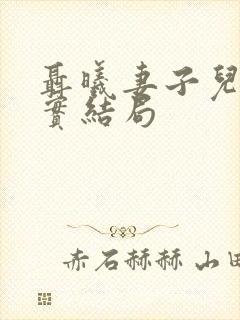 聶曦妻子兒
實結局
赤石赫赫 山田